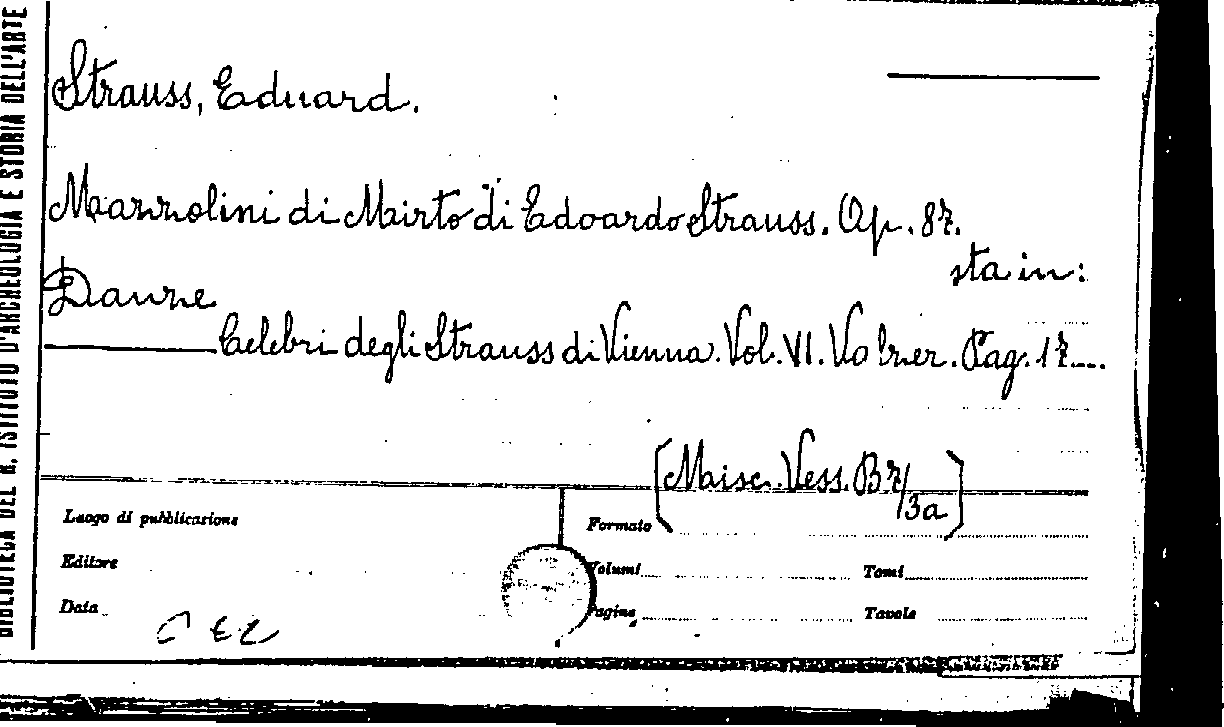 BIBLIOTECA DEL R. ISTITUTO D'ARCHEOLOGIA E STORIA DELL'ARTE
Strauss, Eduard.
Mazzolini di Mirto di Edoardo Strauss. Op. 87.
sta in:
Danze
Celebri degli Strauss di Vienna. Vol. VI. Valzer. Pag. 17....
[Misc. Vess. B7/3a]
Luogo di pubblicazione
Formato
Editore
Volumi
Tomi
Data
Pagine
Tavole